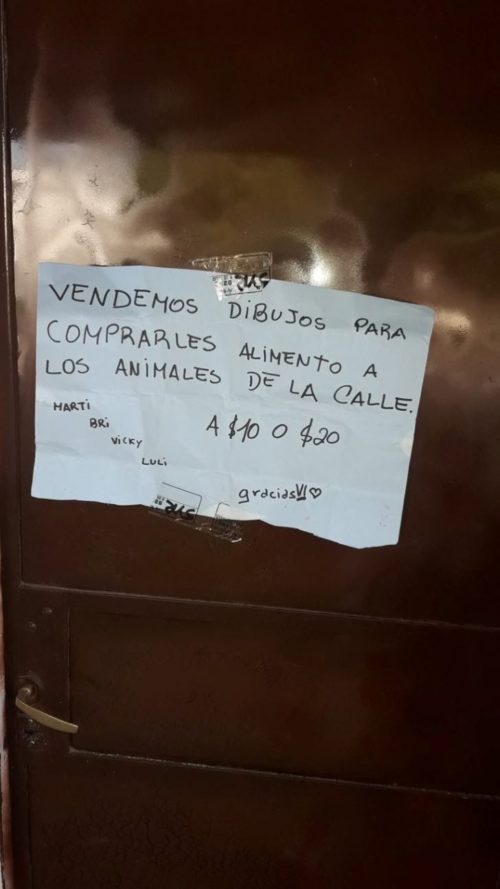 VENDEMOS DIBUJOS PARA
COMPRARLES ALIMENTO A
LOS ANIMALES DE LA CALLE.
A $10 O $20
MARTI
BRI
VICKY
LULI
gracias!! ♡